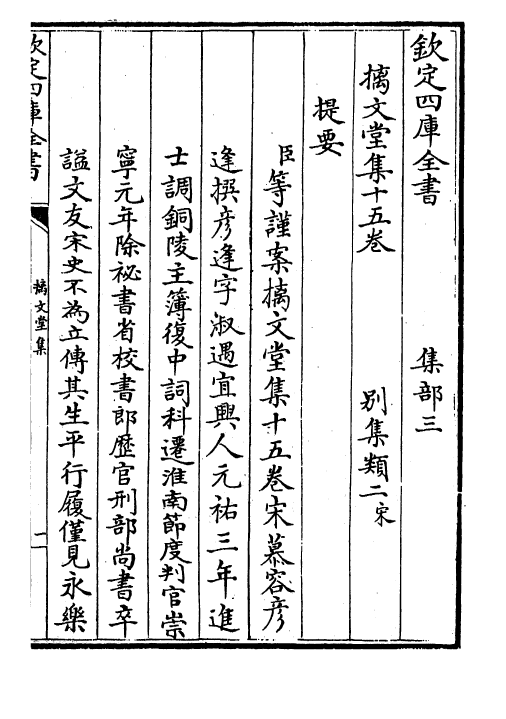 欽定四庫全書 集部三
摛文堂集十五巻 别集類二宋
提要
臣等謹案摛文堂集十五巻宋慕容彦
逢撰彦逢字淑遇宜興人元祐三年進
士調銅陵主簿復中詞科遷淮南節度判官崇
寧元年除祕書省校書郎歴官刑部尚書卒
諡文友宋史不為立傳其生平行履僅見永樂
欽定四庫全書
摛文堂集
一